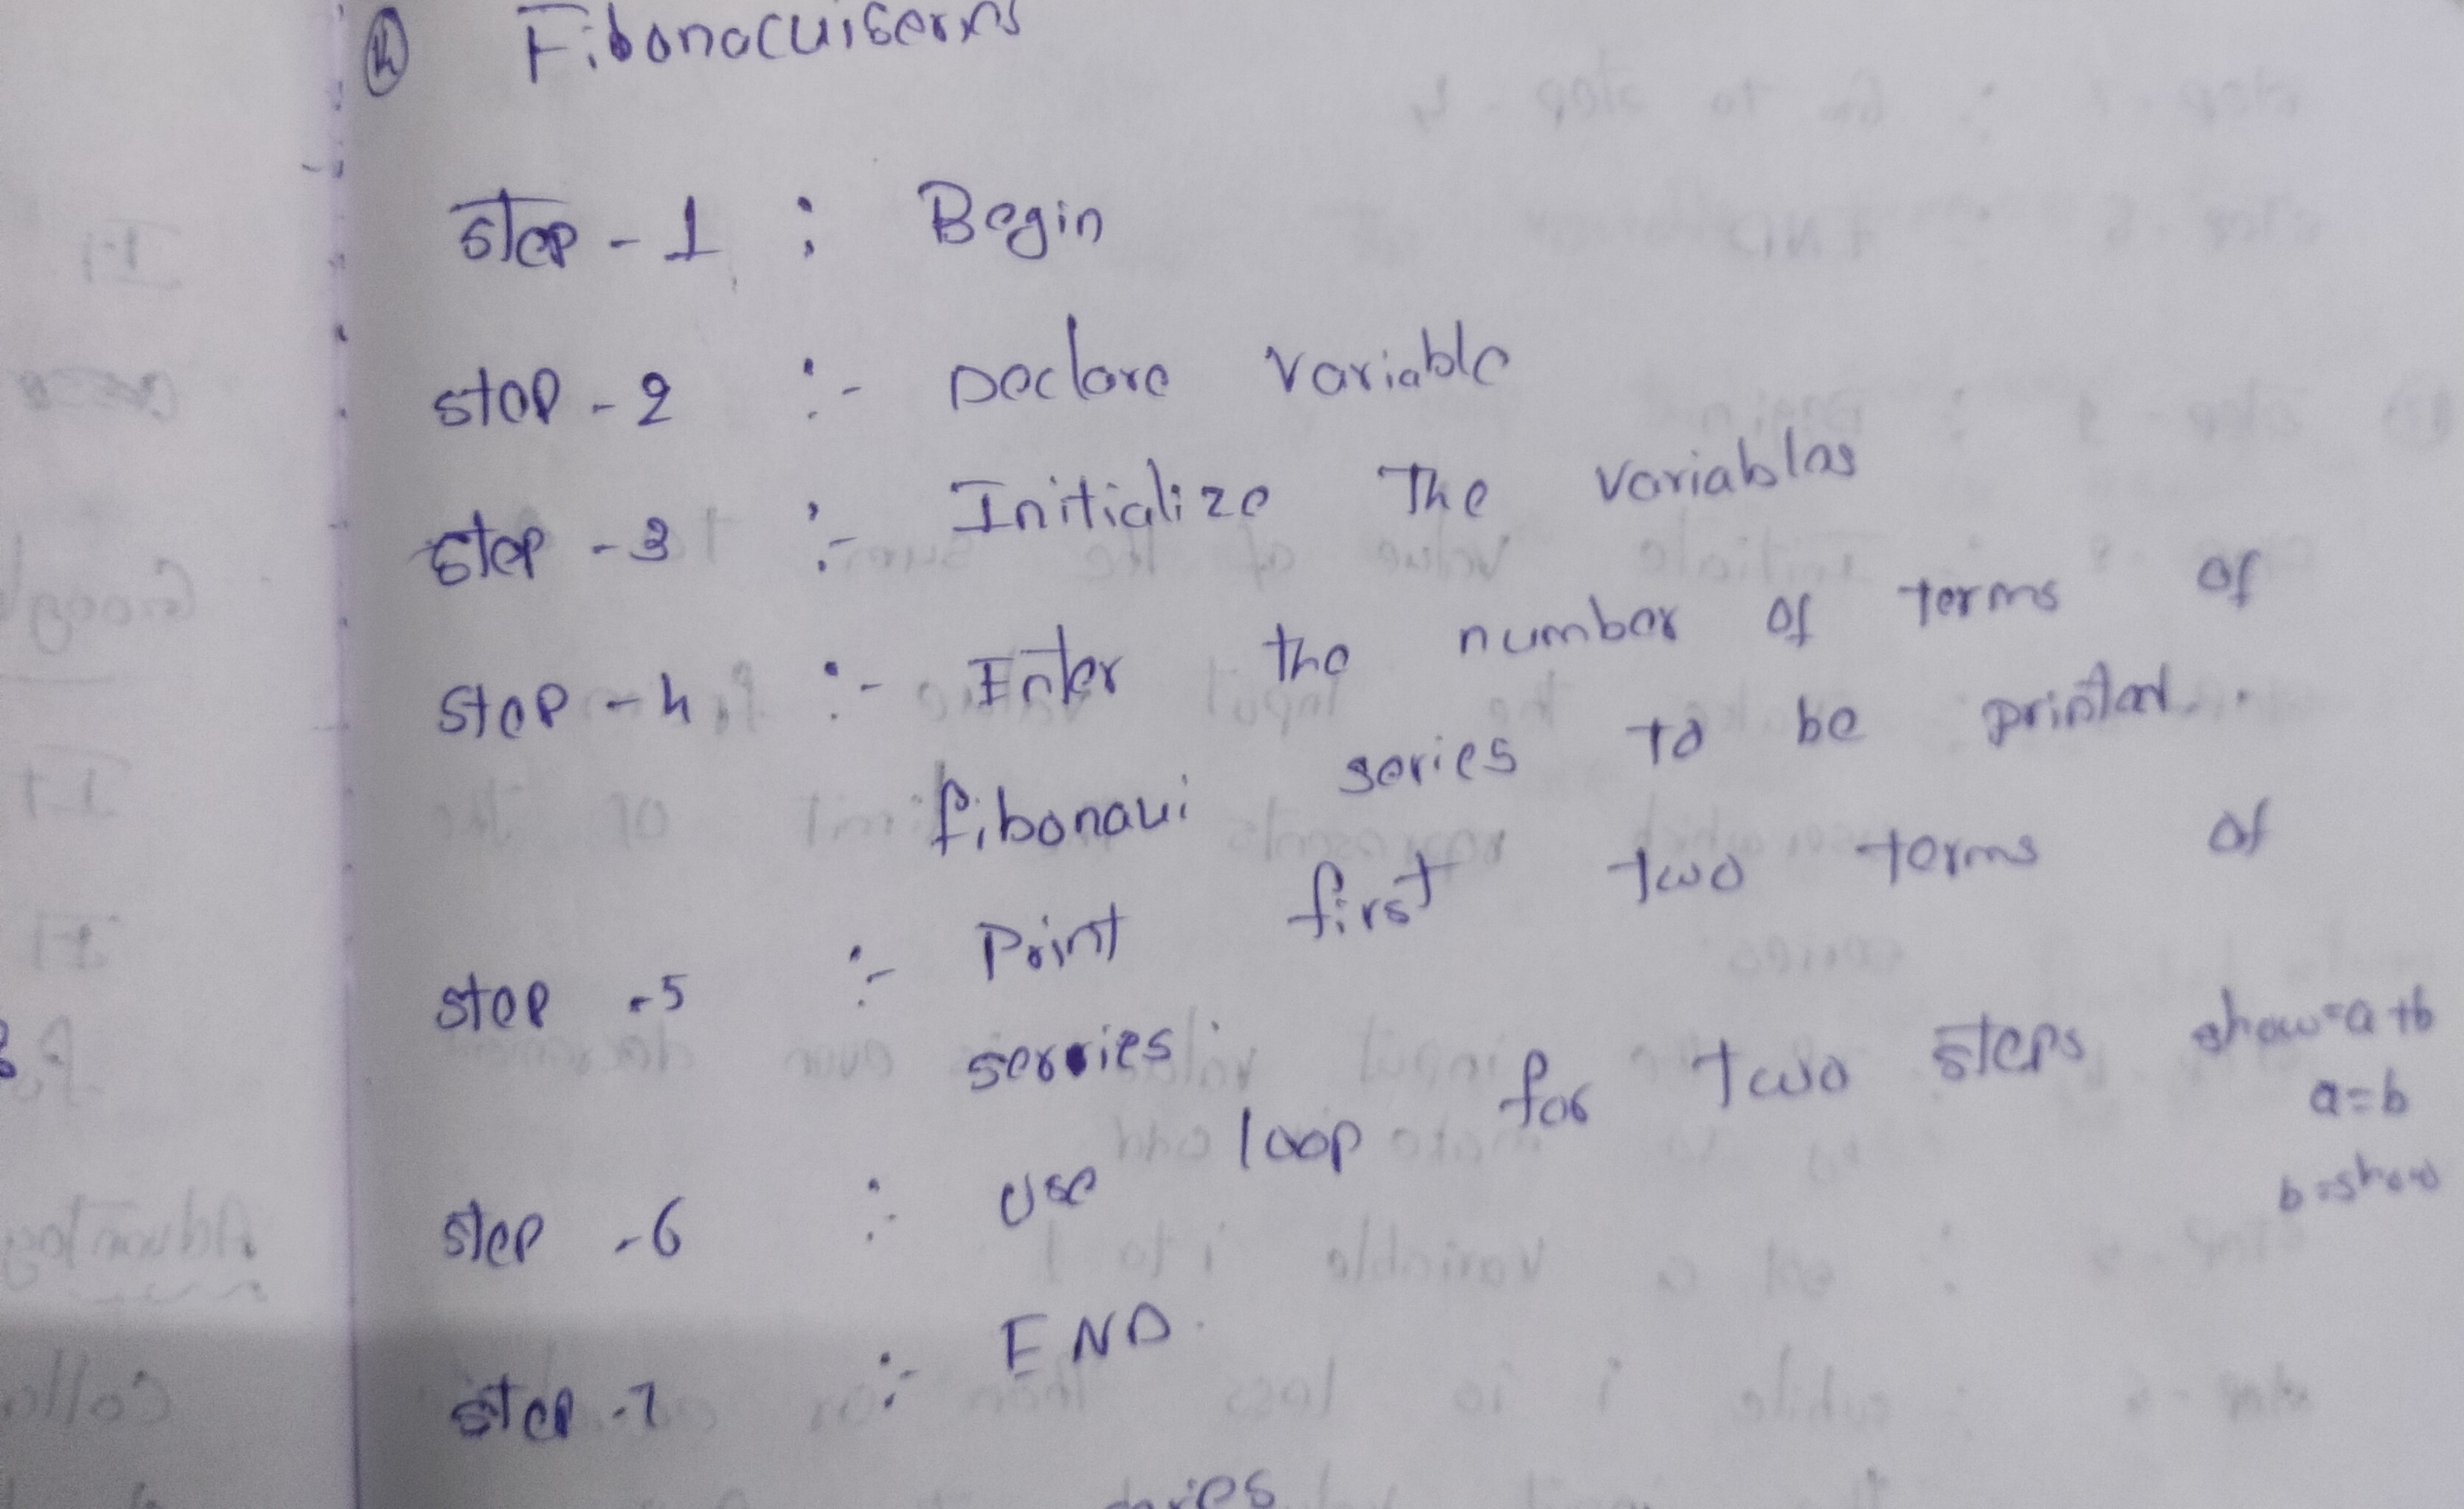 ④ Fibonacciseries
step - 1 : Begin
step - 2 :- Declare variable
step - 3 :- Initialize The variables
step - 4 :- Enter the number of terms of
fibonacci series to be printed.
step - 5 :- Print first two terms of
series.
step - 6 : use loop for two steps show=a+b
a=b
b=show
step - 7 :- END.